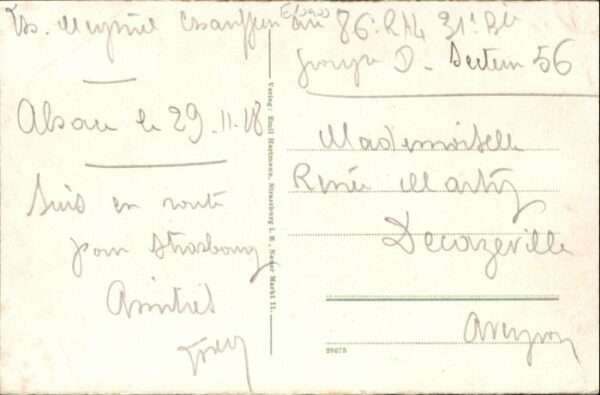 86e R.A.L 31e Bie
Groupe D - Secteur 56
Alsace le 29-11-18
Suis en route
pour Strasbourg
Amitiés
Verlag: Emil Hartmann, Strassburg i. E., Neuer Markt 11.
Mademoiselle
Renée Marty
Decazeville
Aveyron